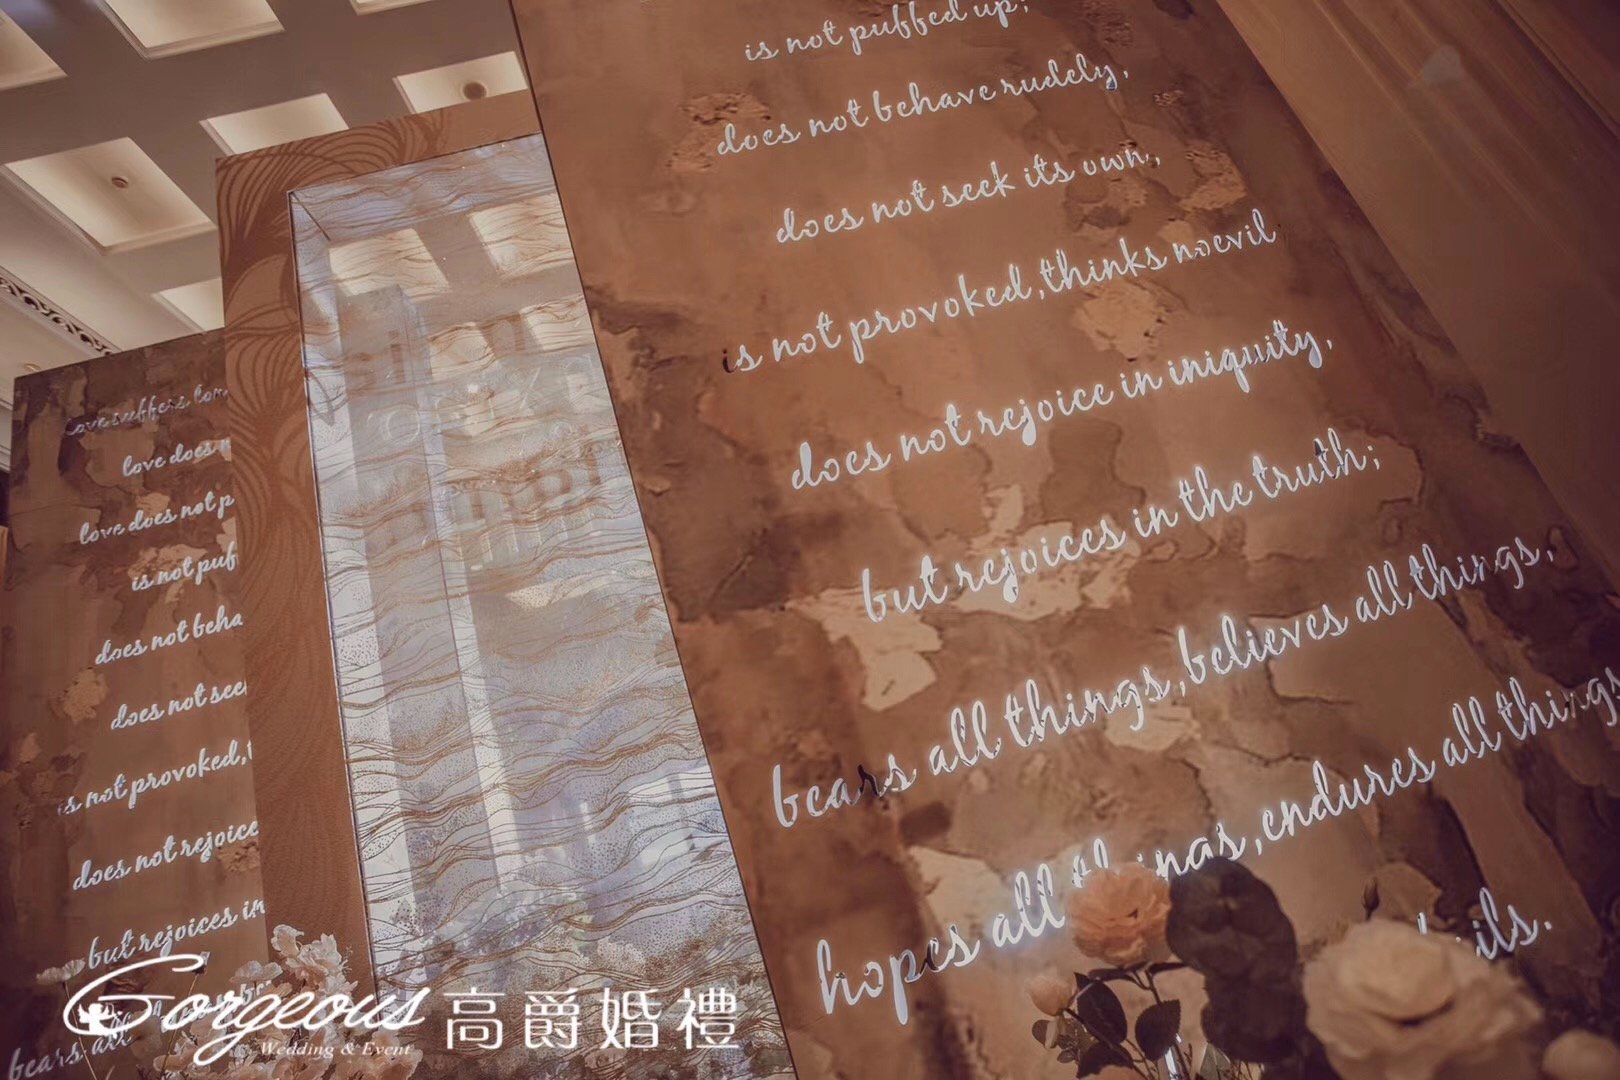 Love suffers lon
love does n
love does not p
is not puf
does not beha
does not see
is not provoked, t
does not rejoice
but rejoices in
bears all
is not puffed up;
does not behave rudely,
does not seek its own,
is not provoked, thinks noevil
does not rejoice in iniquity,
but rejoices in the truth;
bears all things, believes all things,
hopes all things, endures all things
ils.
Gorgeous 高爵婚禮
Wedding & Event